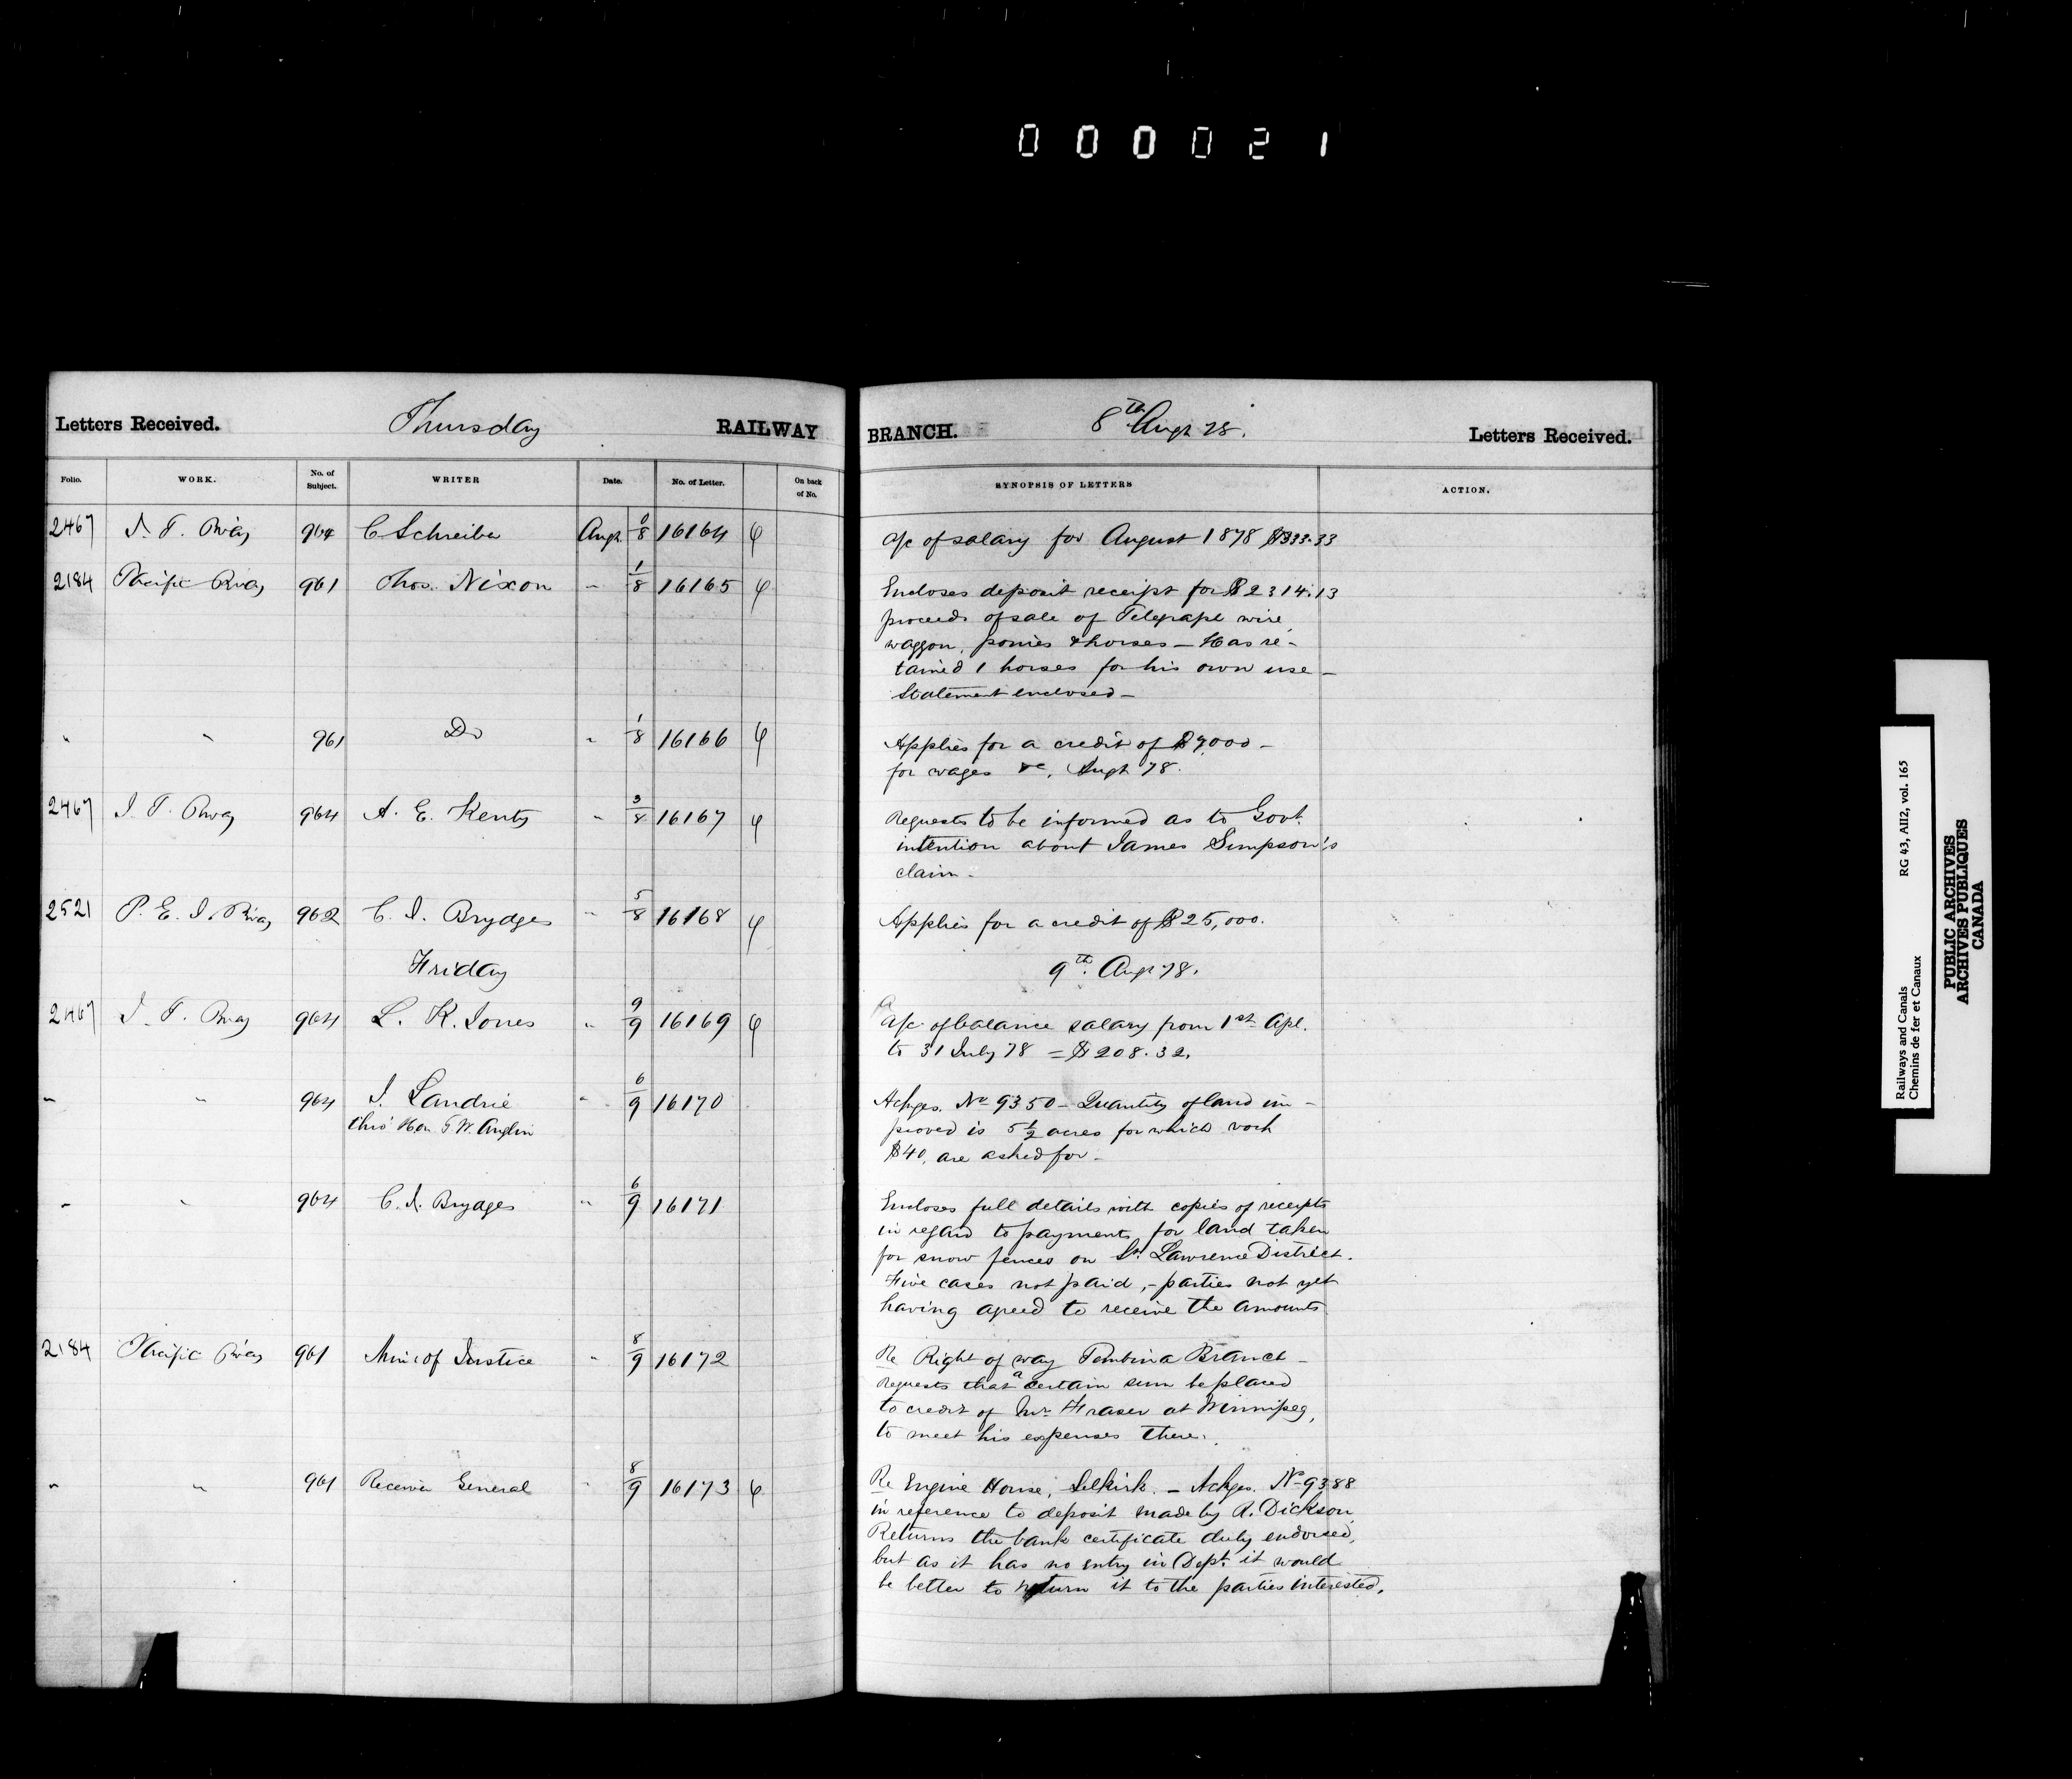 000021
Letters Received. Thursday RAILWAY
BRANCH. 8th Augt 78. Letters Received.
Folio. WORK. No. of Subject. WRITER Date. No. of Letter. On back of No.
SYNOPSIS OF LETTERS ACTION.
2467 964 C Schreiber Augt 8 16164
a/c of salary for August 1878 $333.33
2184 Pacific Rway 961 Thos. Nixon " 1/8 16165
Encloses deposit receipt for $2314.13
proceeds of sale of Telegraph wire,
waggon, ponies & horses – Has re-
tained 1 horses for his own use –
Statement enclosed –
" " 961 Do " 1/8 16166
Applies for a credit of $7,000 –
for wages &c, Augt 78.
2467 964 A. E. " 3/8 16167
Requests to be informed as to Govt.
intention about James Simpson's
claim –
2521 P. E. I. Rway 962 C. J. Brydges " 5/8 16168
Applies for a credit of $25,000.
Friday 9th. Augt 78.
2467 964 L. K. Jones " 9/9 16169
a/c of balance salary from 1st Apl.
to 31 July 78 = $208.32.
" " 964 J. Landrie " 6/9 16170
thro' Hon T. W. Anglin
Ackges. No 9350 – Quantity of land im-
proved is 5 1/2 acres for which
$40, are asked for –
" " 964 C. J. Brydges " 6/9 16171
Encloses full details with copies of receipts
in regard to payments for land taken
for snow fences on St. Lawrence District.
Five cases not paid, – parties not yet
having agreed to receive the amounts.
2184 Pacific Rway 961 Min: of Justice " 8/9 16172
Re Right of way Pembina Branch –
Requests that a certain sum be placed
to credit of Mr. Fraser at Winnipeg,
to meet his expenses there.
" " 961 Receiver General " 8/9 16173
Re Engine House, Selkirk. – Ackges. No 9388
in reference to deposit made by A. Dickson,
Returns the bank certificate duly endorsed,
but as it has no entry in Dept. it would
be better to return it to the parties interested.
Railways and Canals RG 43, AII2, vol. 165
Chemins de fer et Canaux
PUBLIC ARCHIVES
ARCHIVES PUBLIQUES
CANADA